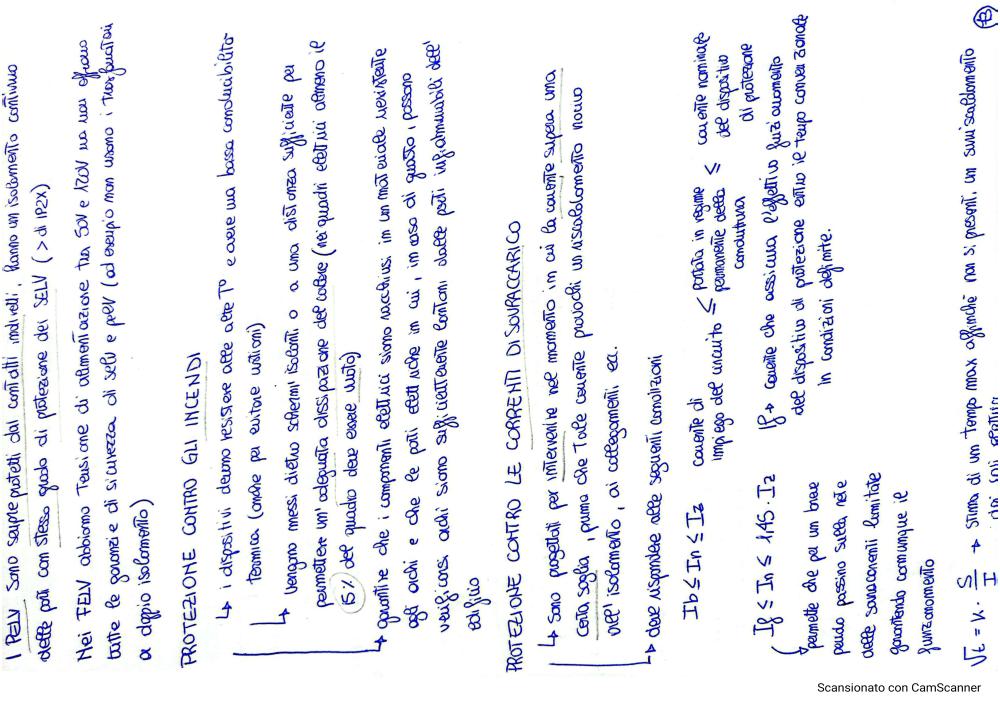 I PELV sono sempre protetti dai contatti indiretti, hanno un isolamento continuo
delle parti con stesso grado di protezione dei SELV (> di IP2X)
Nei FELV abbiamo tensione di alimentazione tra 50V e 120V ma non offrono
tutte le garanzie di sicurezza di selv e pelv (ad esempio non usano i trasformatori
a doppio isolamento)
PROTEZIONE CONTRO GLI INCENDI
↳ i dispositivi devono resistere alle alte T° e avere una bassa conducibilità
termica (anche per evitare ustioni)
↳ vengono messi dietro schermi isolanti o a una distanza sufficiente per
permettere un'adeguata dissipazione del calore (nei quadri elettrici almeno il
15% del quadro deve essere vuoto)
↳ garantire che i componenti elettrici siano racchiusi in un materiale resistente
agli archi e che le parti elettriche in cui, in caso di guasto, possano
verificarsi archi siano sufficientemente lontani dalle parti infiammabili dell'
edificio
PROTEZIONE CONTRO LE CORRENTI DI SOVRACCARICO
↳ sono progettati per intervenire nel momento in cui la corrente supera una
certa soglia, prima che tale corrente provochi un riscaldamento nocivo
all'isolamento, ai collegamenti ecc.
↳ deve rispondere alle seguenti condizioni
Ib ≤ In ≤ Iz
corrente di
impiego del circuito ≤ portata in regime
permanente della
conduttura
≤ corrente nominale
del dispositivo
di protezione
If ≤ In ≤ 1,45 · Iz
If → corrente che assicura l'effettivo funzionamento
del dispositivo di protezione entro il tempo convenzionale
in condizioni definite.
permette che per un breve
periodo passino sulla rete
delle sovracorrenti limitate
garantendo comunque il
funzionamento
√t = K · S/I → stima di un tempo max affinchè non si presenti un surriscaldamento
Scansionato con CamScanner